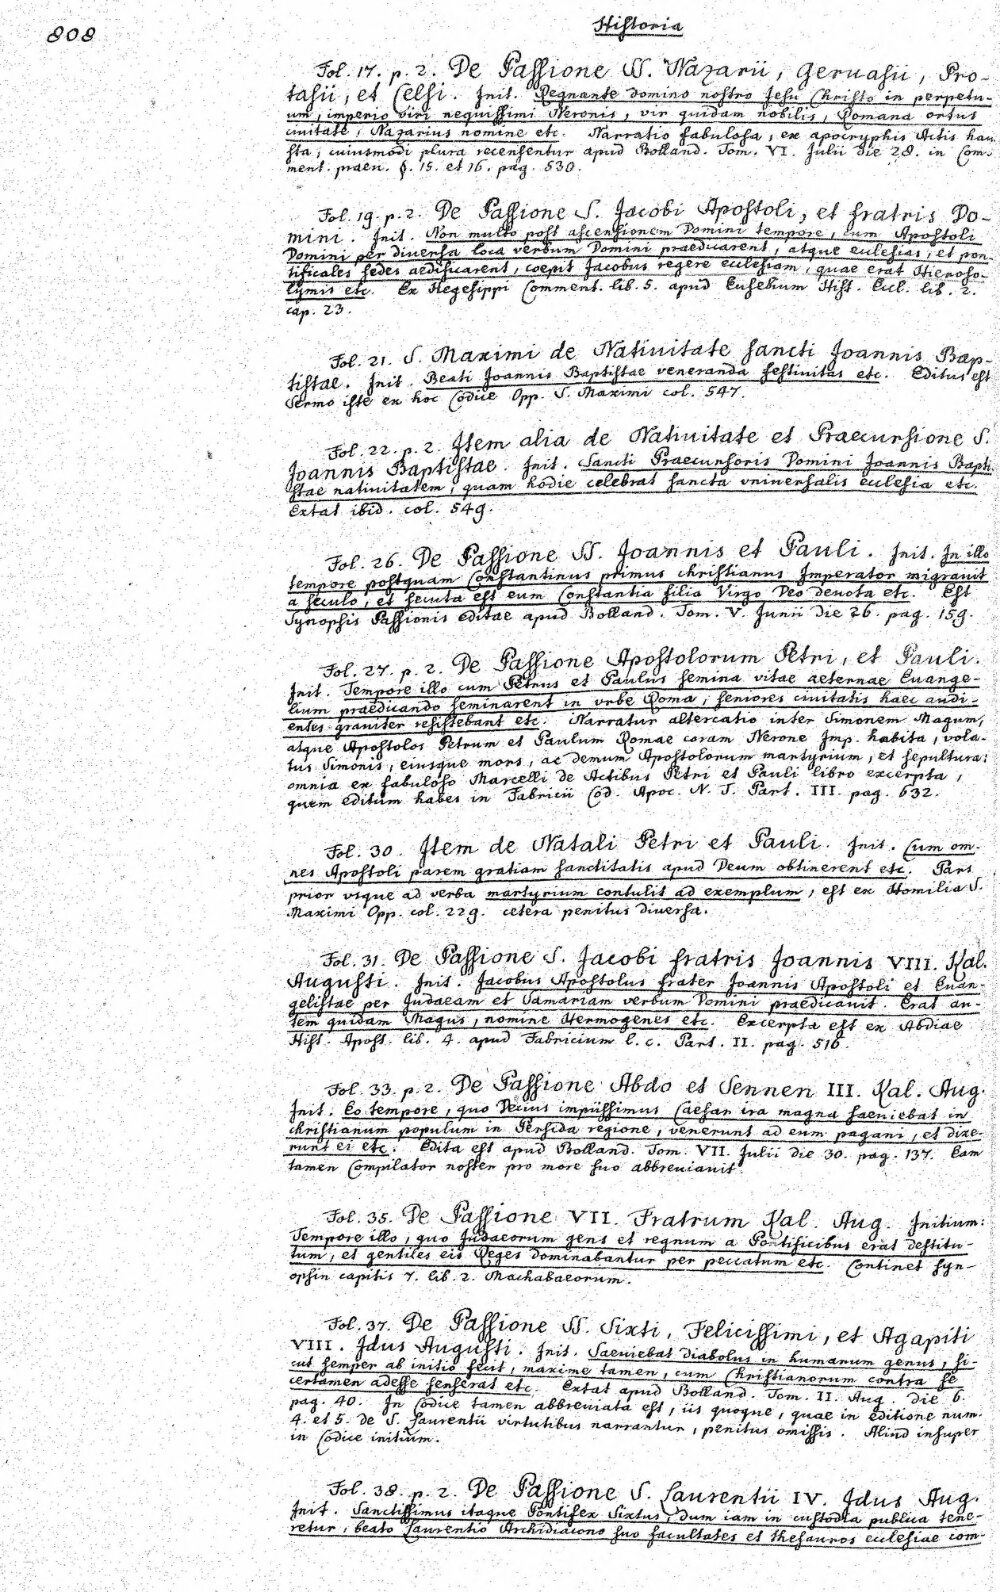 808
Historia
Fol. 17. p. 2. De Passione SS. Nazarii, Geruasii, Pro-
tasii, et Celsi. Init. Regnante domino nostro Jesu Christo in perpetu-
um, imperio viri nequissimi Neronis, vir quidam nobilis, Romana ortus
ciuitate, Nazarius nomine etc. Narratio fabulosa, ex apocryphis Actis hau
sta, cuiusmodi plura recensentur apud Bolland. Tom. VI. Julii die 28. in Com-
ment. praeu. §. 15. et 16. pag. 530.
Fol. 19. p. 2. De Passione S. Jacobi Apostoli, et fratris Do-
mini. Init. Non multo post ascensionem Domini tempore, cum Apostoli
Domini per diuersa loca verbum Domini praedicarent, atque eclesias, et pon-
tificales sedes aedificarent, coepit Jacobus regere eclesiam, quae erat Hieroso-
lymis etc. Ex Hegesippi Comment. lib. 5. apud Eusebium Hist. Eccl. lib. 2.
cap. 23.
Fol. 21. S. Maximi de Natiuitate sancti Joannis Bap-
tistae. Init. Beati Joannis Baptistae veneranda festiuitas etc. Editus est
Sermo iste ex hoc Codice Opp. S. Maximi col. 547.
Fol. 22. p. 2. Item alia de Natiuitate et Praecursione S.
Joannis Baptistae. Init. Sancti Praecursoris Domini Joannis Bapti-
stae natiuitatem, quam hodie celebrat sancta vniuersalis eclesia etc.
Extat ibid. col. 549.
Fol. 26. De Passione SS. Joannis et Pauli. Init. In illo
tempore postquam Constantinus primus christianus Imperator migrauit
a seculo, et secuta est eum Constantia filia Virgo Deo deuota etc. Est
Synopsis Passionis editae apud Bolland. Tom. V. Junii die 26. pag. 159.
Fol. 27. p. 2. De Passione Apostolorum Petri, et Pauli.
Init. Tempore illo cum Petrus et Paulus semina vitae aeternae Euange-
lium praedicando seminarent in vrbe Roma, seniores ciuitatis haec audi-
entes grauiter resistebant etc. Narratur altercatio inter Simonem Magum,
atque Apostolos Petrum et Paulum Romae coram Nerone Imp. habita, vola-
tus Simonis, eiusque mors, ac demum Apostolorum martyrium, et sepultura:
omnia ex fabuloso Marcelli de Actibus Petri et Pauli libro excerpta,
quem editum habes in Fabricii Cod. Apoc. N. T. Part. III. pag. 632.
Fol. 30. Item de Natali Petri et Pauli. Init. Cum om-
nes Apostoli parem gratiam sanctitatis apud Deum obtinerent etc. Pars
prior vsque ad verba martyrium contulit ad exemplum, est ex Homilia S.
Maximi Opp. col. 229. cetera penitus diuersa.
Fol. 31. De Passione S. Jacobi fratris Joannis VIII. Kal.
Augusti. Init. Jacobus Apostolus frater Joannis Apostoli et Euan-
gelistae per Judaeam et Samariam verbum Domini praedicauit. Erat au-
tem quidam Magus, nomine Hermogenes etc. Excerpta est ex Abdiae
Hist. Apost. lib. 4. apud Fabricium l. c. Part. II. pag. 516.
Fol. 33. p. 2. De Passione Abdo et Sennen III. Kal. Aug.
Init. Eo tempore, quo Decius impiissimus Caesar ira magna saeuiebat in
christianum populum in Persida regione, venerunt ad eum pagani, et dixe-
runt ei etc. Edita est apud Bolland. Tom. VII. Julii die 30. pag. 137. Eam
tamen Compilator noster pro more suo abbreuiauit.
Fol. 35. De Passione VII. Fratrum Kal. Aug. Initium:
Tempore illo, quo Judaeorum gens et regnum a Pontificibus erat destitu-
tum, et gentiles eis Reges dominabantur per peccatum etc. Continet syn-
opsin capitis 7. lib. 2. Machabaeorum.
Fol. 37. De Passione SS. Sixti, Felicissimi, et Agapiti
VIII. Idus Augusti. Init. Saeuiebat diabolus in humanum genus, si-
cut semper ab initio fecit, maxime tamen, cum Christianorum contra se
certamen adesse senserat etc. Extat apud Bolland. Tom. II. Aug. die 6.
pag. 40. In Codice tamen abbreuiata est, iis quoque, quae in editione num.
4. et 5. de S. Laurentii virtutibus narrantur, penitus omissis. Aliud insuper
in Codice initium.
Fol. 38. p. 2. De Passione S. Laurentii IV. Idus Aug.
Init. Sanctissimus itaque Pontifex Sixtus, dum iam in custodia publica tene-
retur, beato Laurentio Archidiacono suo facultates et thesauros eclesiae com-